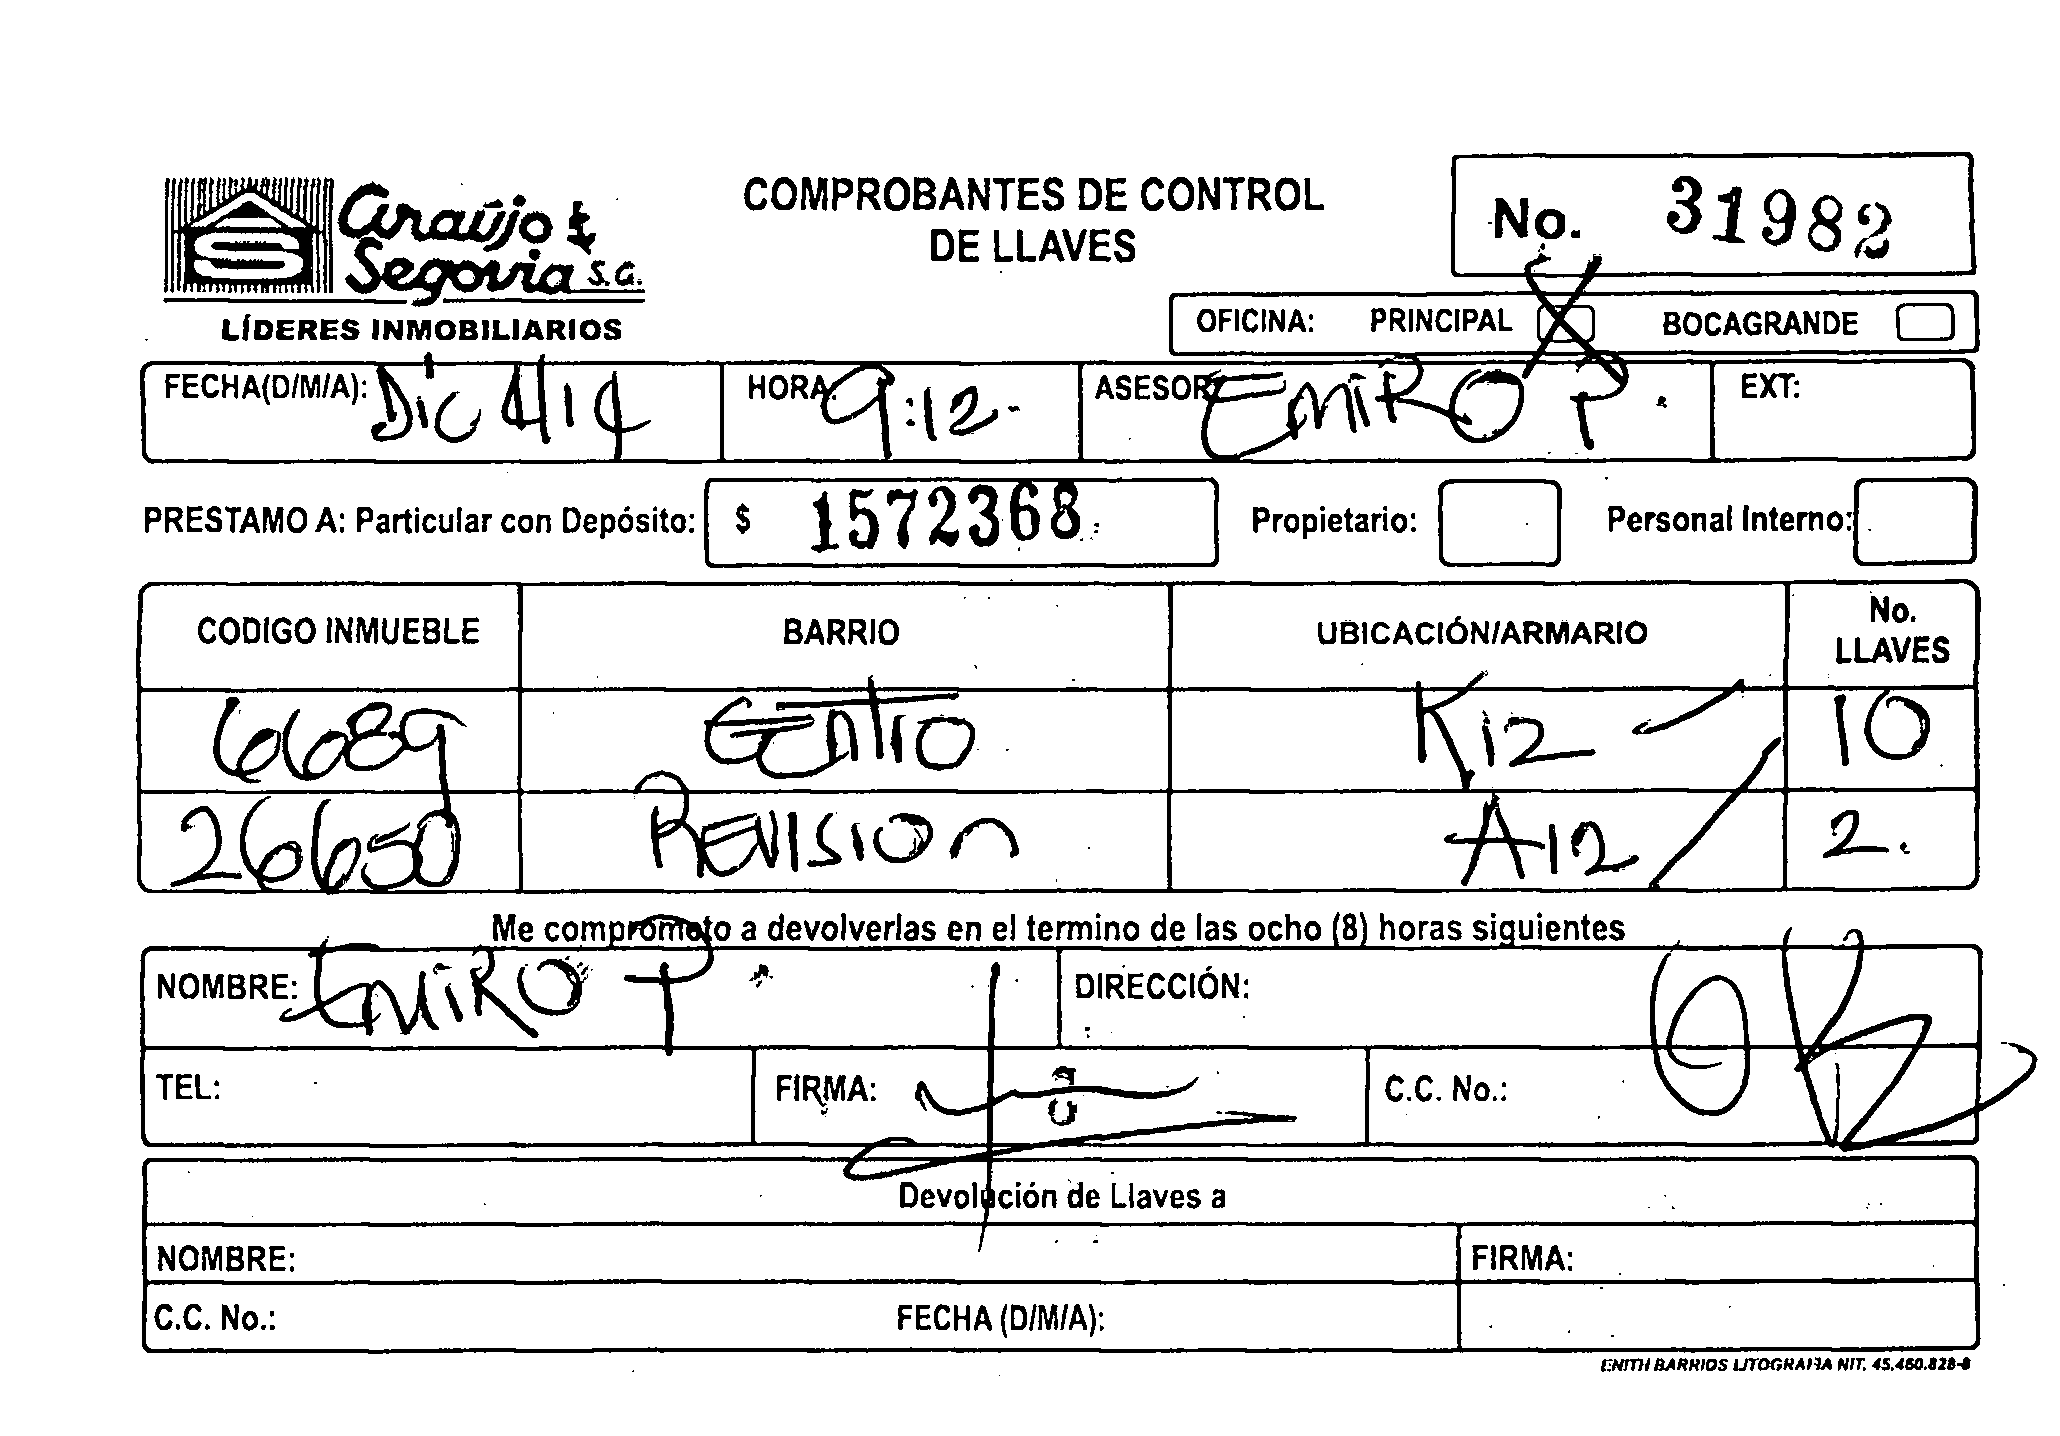 Araújo & Segovia S.A.
LÍDERES INMOBILIARIOS
COMPROBANTES DE CONTROL
DE LLAVES
No. 31982
OFICINA: PRINCIPAL X BOCAGRANDE
FECHA(D/M/A): Dic 4/14 HORA: 9:12 ASESOR: EMIRO P. EXT:
PRESTAMO A: Particular con Depósito: $ 1572368 Propietario: Personal Interno:
CODIGO INMUEBLE BARRIO UBICACIÓN/ARMARIO No. LLAVES
6689 CENTRO K12 10
26650 REVISION A12 2.
Me comprometo a devolverlas en el termino de las ocho (8) horas siguientes
NOMBRE: EMIRO P. DIRECCIÓN:
OK
TEL: FIRMA: C.C. No.:
Devolución de Llaves a
NOMBRE: FIRMA:
C.C. No.: FECHA (D/M/A):
ENITH BARRIOS LITOGRAFIA NIT. 45.460.828-8